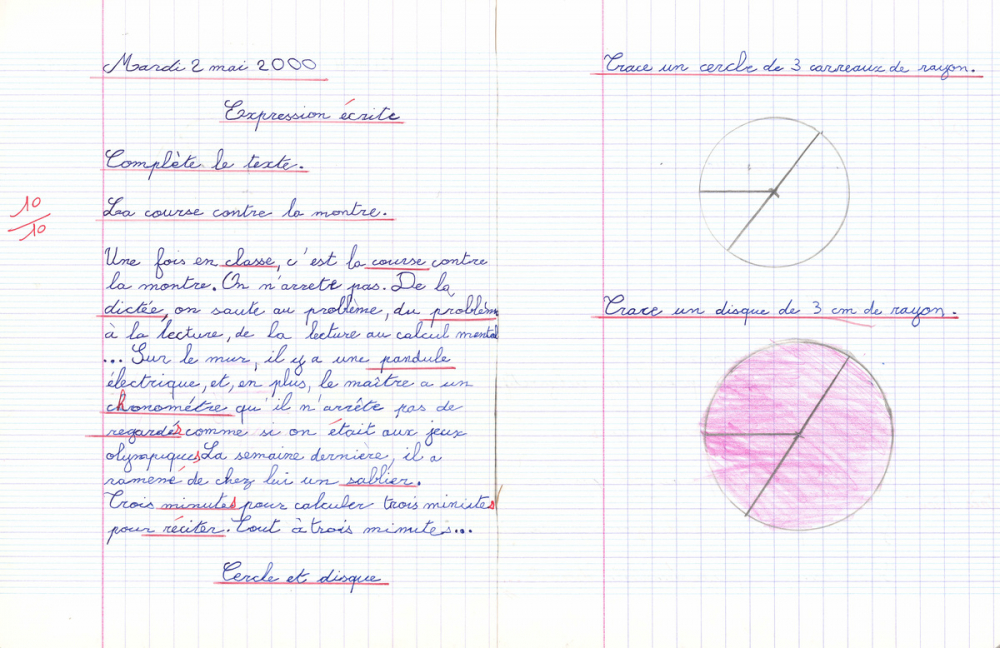 Mardi 2 mai 2000
Expression écrite
Complète le texte.
10
10
La course contre la montre.
Une fois en classe, c'est la course contre
la montre. On n'arrete pas. De la
dictée, on saute au problème, du problème
à la lecture, de la lecture au calcul mental
... Sur le mur, il y a une pandule
électrique, et, en plus, le maître a un
chronométre qu'il n'arrête pas de
regardés comme si on était aux jeux
olympiques. La semaine dernière, il a
ramené de chez lui un sablier.
Trois minutes pour calculer trois minutes
pour réciter. Tout à trois minutes...
Cercle et disque
Trace un cercle de 3 carreaux de rayon.
Trace un disque de 3 cm de rayon.